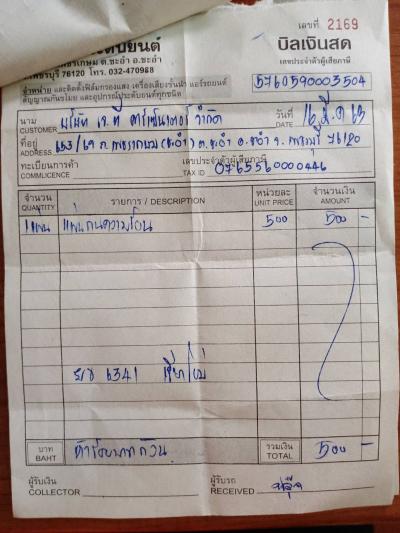 เลขที่ 2169
ประดับยนต์
บิลเงินสด
เพชรเกษม ต.ชะอำ อ.ชะอำ
เพชรบุรี 76120 โทร. 032-470988
เลขประจำตัวผู้เสียภาษี
จำหน่าย และติดตั้งฟิล์มกรองแสง เครื่องเสียงชั้นนำ แอร์รถยนต์
สัญญาณกันขโมย และอุปกรณ์ประดับยนต์ทุกชนิด
5760590003504
นาม CUSTOMER บริษัท เจ.ที คาร์เซ็นเตอร์ จำกัด
วันที่ DATE 16
ที่อยู่ ADDRESS 653/69 ถ.เพชรเกษม (ชะอำ) ต.ชะอำ อ.ชะอำ จ.เพชรบุรี 76120
ทะเบียนการค้า COMMLICENCE
เลขประจำตัวผู้เสียภาษี TAX ID 0765560000446
จำนวน QUANTITY รายการ / DESCRIPTION หน่วยละ UNIT PRICE จำนวนเงิน AMOUNT
1 แผ่น แผ่นกันความร้อน 500 500 -
6341
บาท BAHT ห้าร้อยบาทถ้วน รวมเงิน TOTAL 500 -
ผู้รับเงิน COLLECTOR
ผู้รับรถ RECEIVED